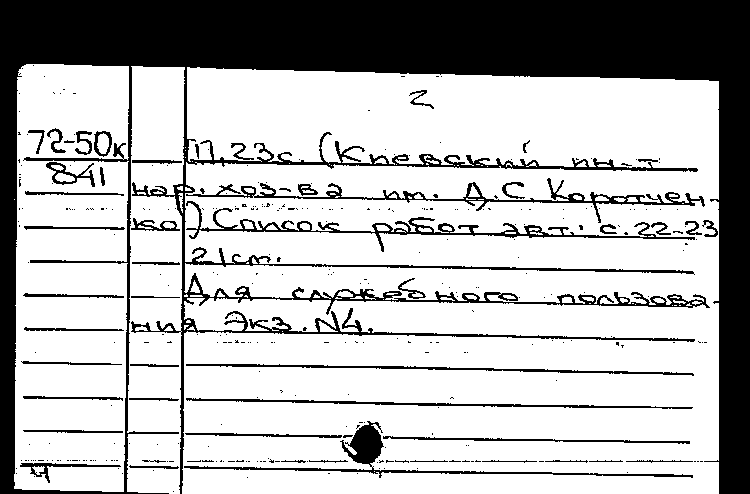 2
72-50к
841
П, 23с. (Киевский ин-т
нар. хоз-ва им. Д.С. Коротчен-
ко). Список работ авт.: с. 22-23
21см.
Для служебного пользова-
ния Экз. N4.
ч